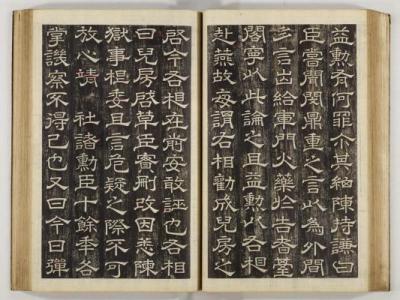 益勳有何罪尒其細陳持謙曰
臣嘗聞閔鼎重之言以爲外間
多言出給軍門火藥於告者臺
閣寧以此論之且益勳以右相
赴燕故妄謂右相勸成兒房之
啓今右相在前安敢誣也右相
曰兒房啓草臣實刪改因悉陳
獄事根委且言危疑之際不可
放心靖 社諸勳臣十餘年各
掌譏察不得已也又曰今日彈